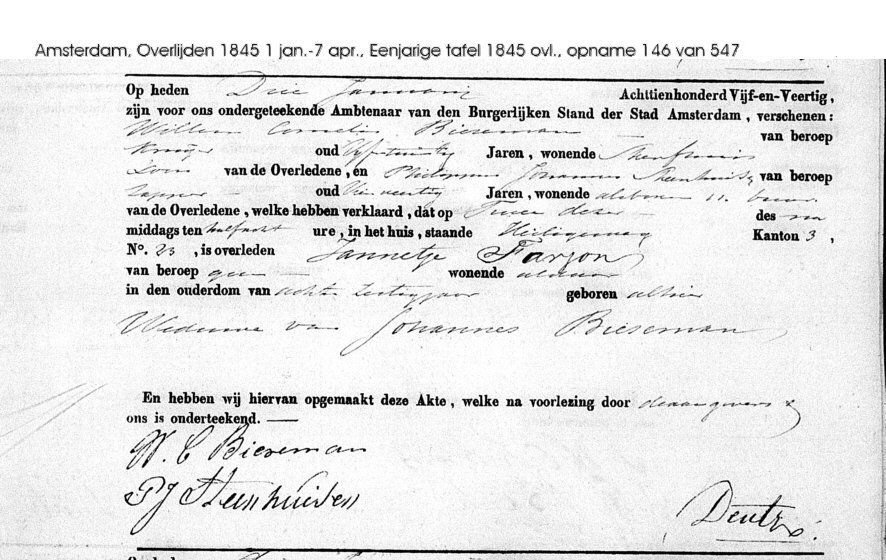 Amsterdam, Overlijden 1845 1 jan.-7 apr., Eenjarige tafel 1845 ovl., opname 146 van 547
Op heden Drie Januarij Achttienhonderd Vijf-en-Veertig,
zijn voor ons ondergeteekende Ambtenaar van den Burgerlijken Stand der Stad Amsterdam, verschenen:
Willem Cornelis Bieseman van beroep
oud Jaren, wonende
Zoon van de Overledene, en Philippus Johannes Steenhuisen van beroep
Tapper oud Jaren, wonende 11. buur
van de Overledene, welke hebben verklaard, dat op Twee dezer des na
middags ten half acht ure, in het huis, staande Heiligeweg Kanton 3,
N°. 23, is overleden Jannetje Farjon
van beroep geen wonende aldaar
in den ouderdom van acht en zestig jaar geboren alhier
Weduwe van Johannes Bieseman
En hebben wij hiervan opgemaakt deze Akte, welke na voorlezing door de aangevers &
ons is onderteekend.
W. C Bieseman
P J Steenhuisen